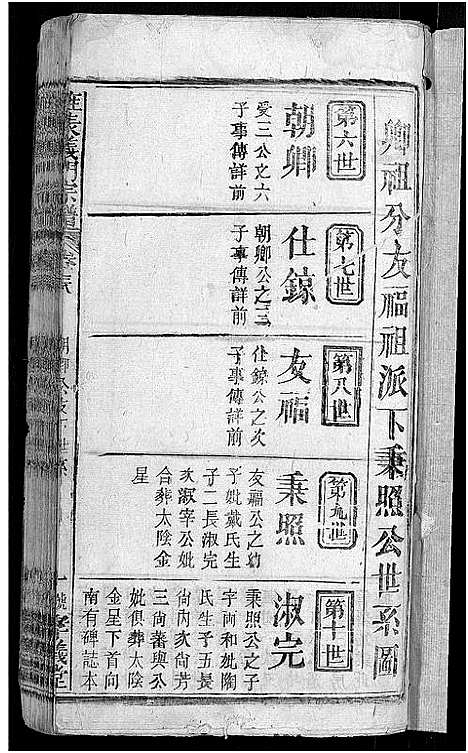 卿祖分友福祖派下秉照公世系圖
第六世
朝卿
受三公之六
子事傳詳前
第七世
仕鍄
朝卿公之三
子事傳詳前
第八世
友福
仕鍄公之次
子事傳詳前
第九世
秉照
友福公之幼
子妣戴氏生
子二長淑完
次淑宰公妣
合葬太陰金
星
第十世
淑完
秉照公之子
字両和妣陶
氏生子五長
尙內次尙芳
三尙蕃與公
妣俱葬太陰
金星下首向
南有碑誌本
義門宗譜
孝義堂